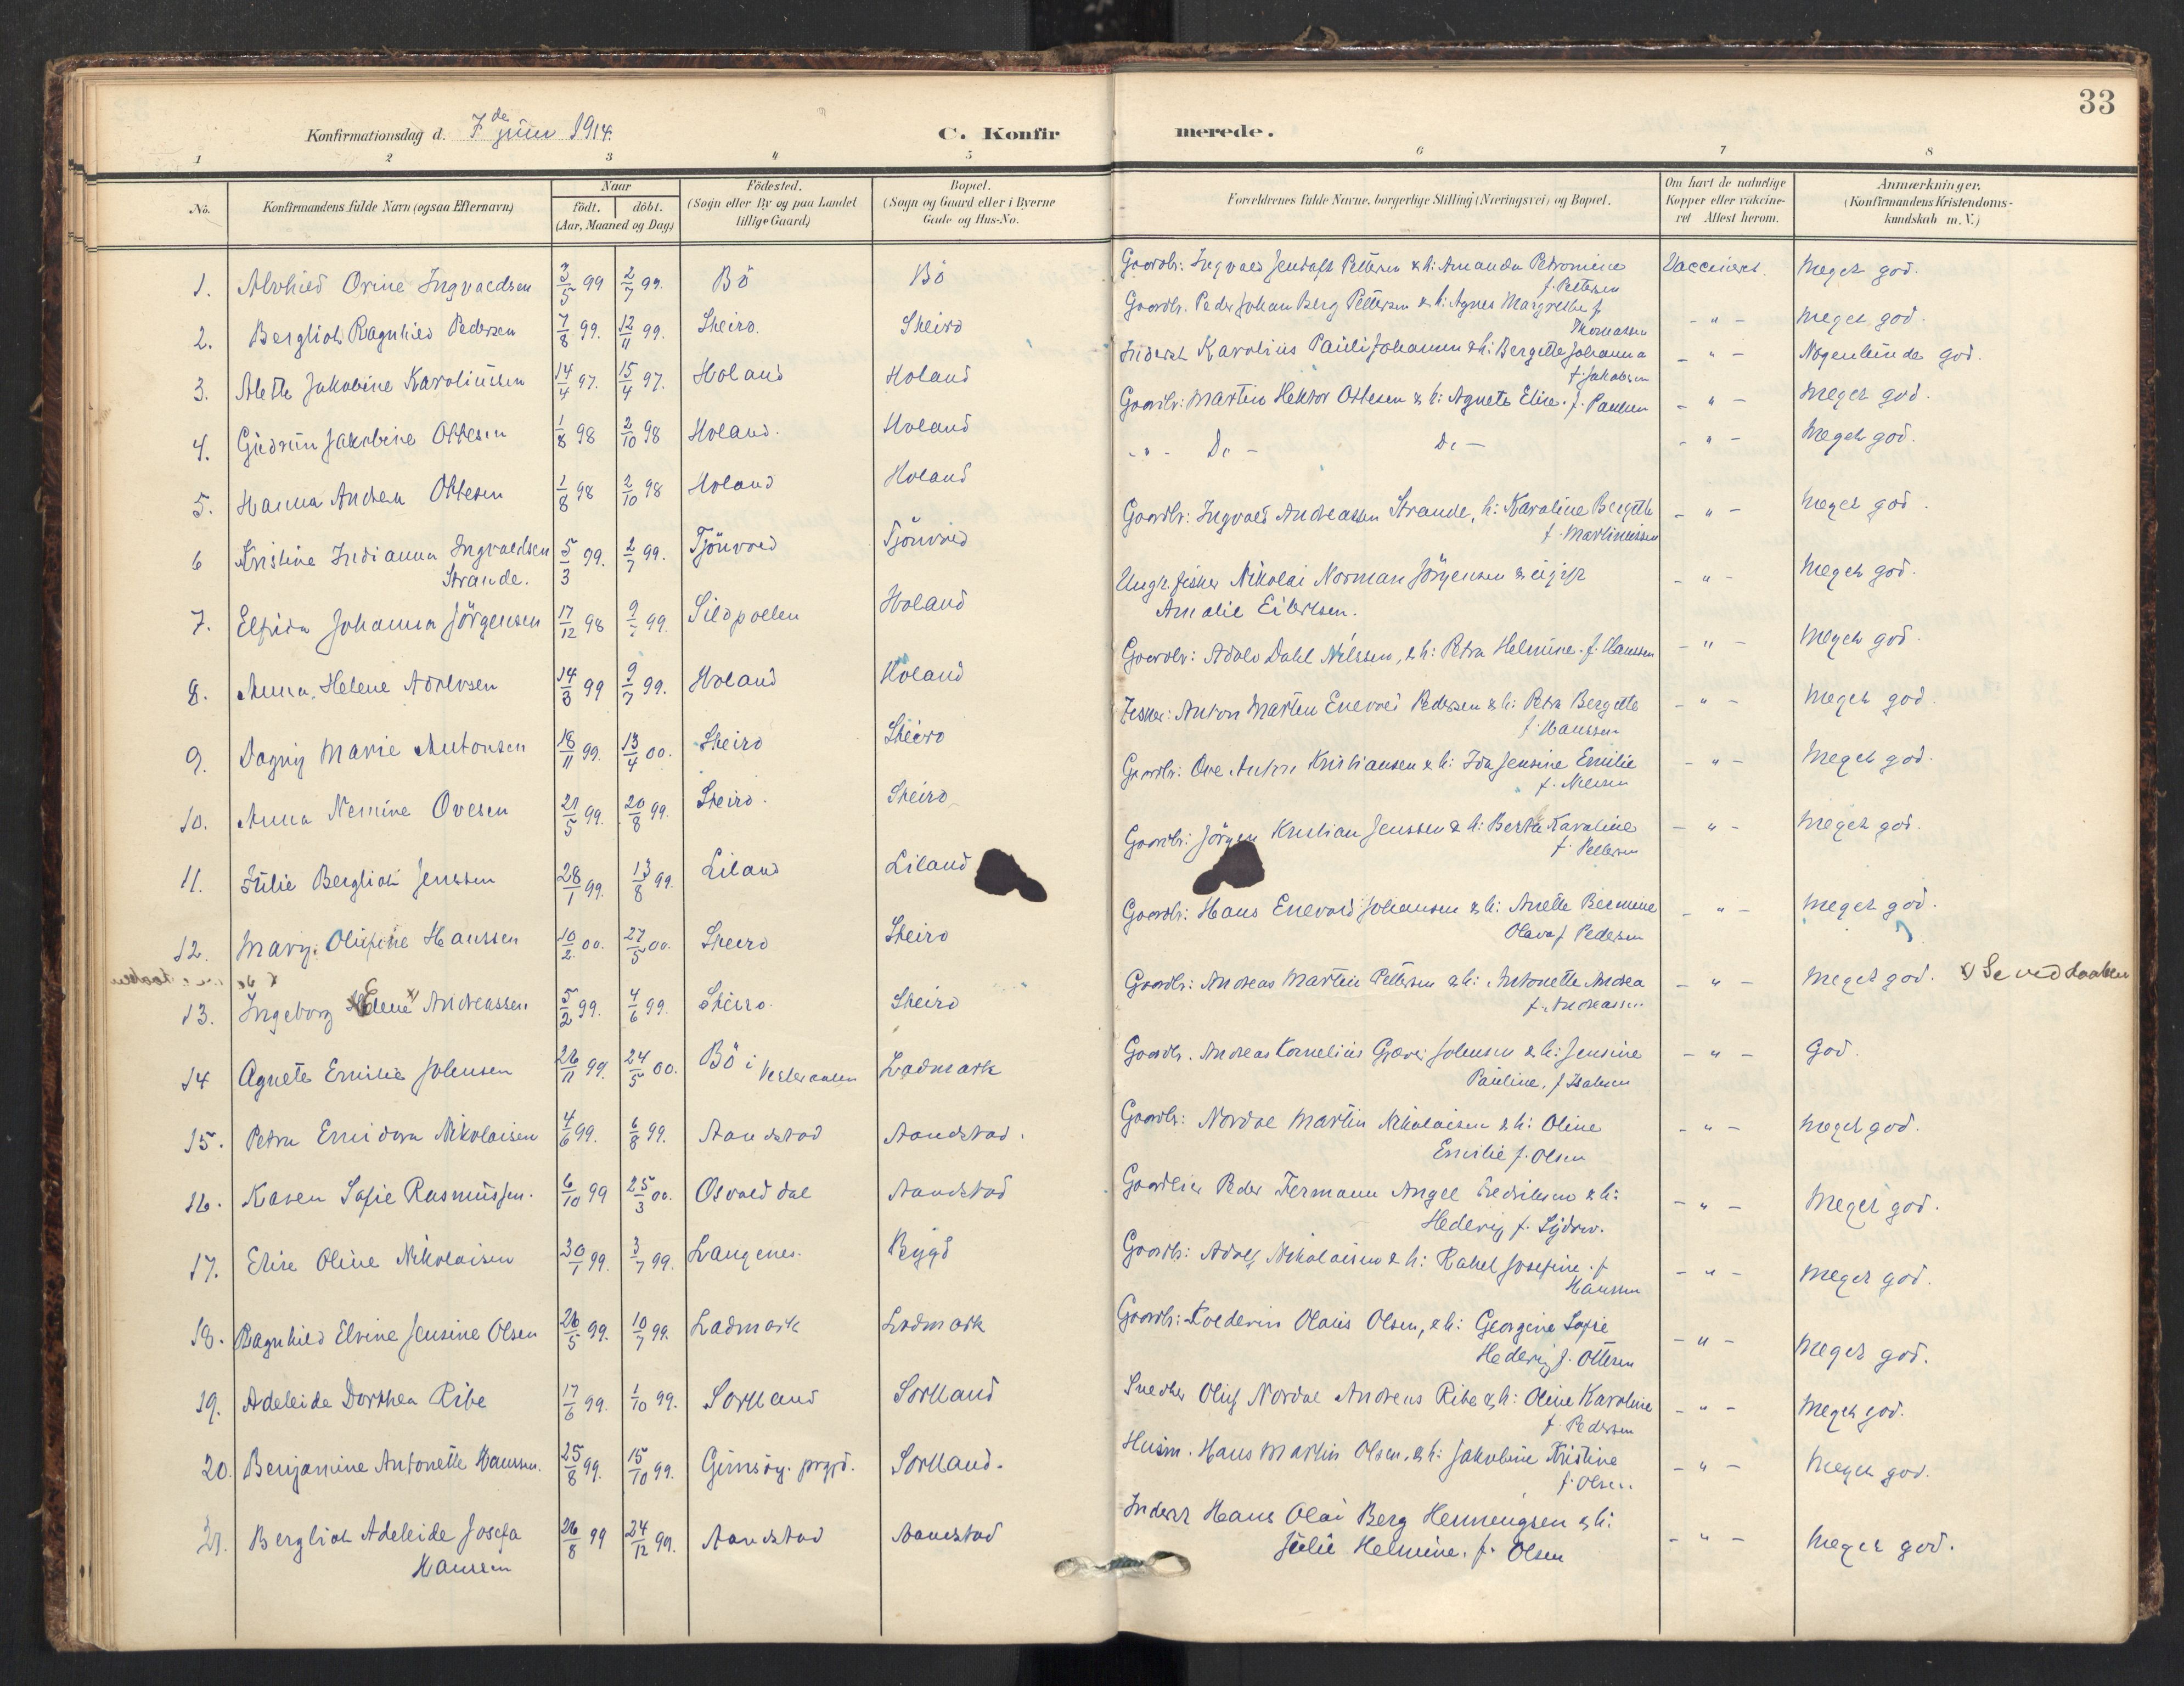 33
Konfirmationsdag d. 7de juni 1914.
C. Konfirmerede.
1 2 3 4 5 6 7 8
No.
Konfirmandens fulde Navn (ogsaa Efternavn)
Naar
födt. döbt.
(Aar, Maaned og Dag)
Födested.
(Sogn eller By og paa Landet
tillige Gaard)
Bopæl.
(Sogn og Gaard eller i Byerne
Gade og Hus-No.
Forældrenes fulde Navne, borgerlige Stilling (Næringsvei) og Bopæl.
Om havt de naturlige
Kopper eller vakcine-
ret Attest herom.
Anmærkninger.
(Konfirmandens Kristendoms-
kundskab m. V.)
1. Alvhild Orine Ingvaldsen 3/5 99 2/7 99. Bö Bö Gaardbr: Ingvald Pettersen & h: Amanda Petromine
f. Pettersen Vaccinert. Meget god.
2. Bergliot Ragnhild Pedersen 7/8 99. 12/11 99. Skeiro. Skeiro Gaardbr. Peder Johan Berg Pettersen & h: Agnes Margrethe f
Thomassen - " - Meget god.
3. Alette Jakobine Karoliussen 14/4 97. 15/4 97. Holand Holand Inderst Karolius Pauli Johansen & h: Bergette Johanna
f. Jakobsen - " - Nogenlunde god.
4. Gudrun Jakobine Ottesen 1/8 98 2/10 98 Holand. Holand Gaardbr: Martin Hektor Ottesen & h: Agnete Elise. f. Paulsen - " - Meget god.
5. Hanna Andrea Ottesen 1/8 98 2/10 98 Holand Holand - " - Do - Do - - " - Meget god.
6 Kristine Indianna Ingvaldsen
Strande. 5/3 99. 2/7 99. Tjönvold Tjönvold Gaardbr: Ingvald Andreassen Strande, h: Karoline Bergitte
f. Martinussen - " - Meget god.
7. Elfrida Johanna Jörgensen 17/12 98 9/7 99. Sildpollen Holand Ungk. fisker Nikolai Norman Jörgensen & ugift
Amalie Eilertsen. - " - Meget god.
8. Anna Helene Adolvsen 14/3 99 9/7 99. Holand Holand Gaardbr: Adolv Dahl Nilssen, & h: Petra Helmine. f. Hanssen - " - Meget god.
9. Dagny Marie Antonsen 18/11 99. 13/4 00. Skeiro Skeiro Fisker: Anton Martin Enevold Pedersen & h: Petra Bergette
f. Hanssen - " - Meget god.
10. Anna Nemine Ovesen 21/5 99. 20/8 99. Skeiro. Skeiro Gaardbr: Ove Anton Kristiansen & h: Ida Jensine Emilie
f. Nilsen - " - Meget god.
11. Julie Bergliot Jenssen 28/1 99. 13/8 99. Liland Liland Gaardbr: Jörgen Kristian Jenssen & h: Berthe Karoline
f. Pettersen - " - Meget god.
12. Mary Olufine Hanssen 10/2 00. 27/5 00. Skeiro Skeiro Gaardbr: Hans Enevold Johansen & h: Anette
Olava f Pedersen - " - Meget god.
13. Ingeborg Elene x) Andreassen 5/2 99. 4/6 99. Skeiro. Skeiro Gaardbr: Andreas Martin Pettersen & h: Antonette Andrea
f. Andreassen - " - Meget god. x) Se ved daaben
14 Agnete Emilie Johnsen 26/11 99. 24/5 00. Bö i Vesteraalen Ladmark Gaardbr. Andreas Kornelius Johnsen & h: Jensine
Pauline, f Isaksen - " - God.
15. Petra Emidora Nikolaisen 4/6 99. 6/8 99. Aandstad Aandstad. Gaardbr: Nordal Martin Nikolaisen & h: Oline
Emilie f. Olsen - " - Meget god.
16. Karen Sofie Rasmussen. 6/10 99 25/3 00. Osvolddal Aandstad Peder Fermann Angel Fredriksen & h:
Hedevig f. - " - Meget god.
17. Elise Oline Nikolaisen 30/1 99. 3/7 99. Langenes. Bygd Gaardbr: Adolf Nikolaisen & h: Rakel Josefine. f
Hansen - " - Meget god.
18. Ragnhild Elvine Jensine Olsen 26/5 99. 10/7 99. Ladmark Ladmark Gaardbr: Olaus Olsen, & h: Georgine Sofie
Hedevig f. Ottesen - " - Meget god.
19. Adeleide Dorthea Ribe 17/6 99. 1/10 99. Sortland Sortland Snedker Oluf Nordal Andreas Ribe & h: Oline Karoline
f. Pedersen - " - Meget god.
20. Benjamine Antonette Hanssen. 25/8 99. 15/10 99. Gimsöy. prgjd. Sortland. Husm. Hans Martin Olsen. & h: Jakobine Kristine
f. Olsen - " - Meget god.
21. Bergliot Adeleide Josefa
Hansen 26/8 99 24/12 99. Aandstad Aandstad Inderst Hans Olai Berg Henningsen & h:
Julie Helmine. f. Olsen - " - Meget god.